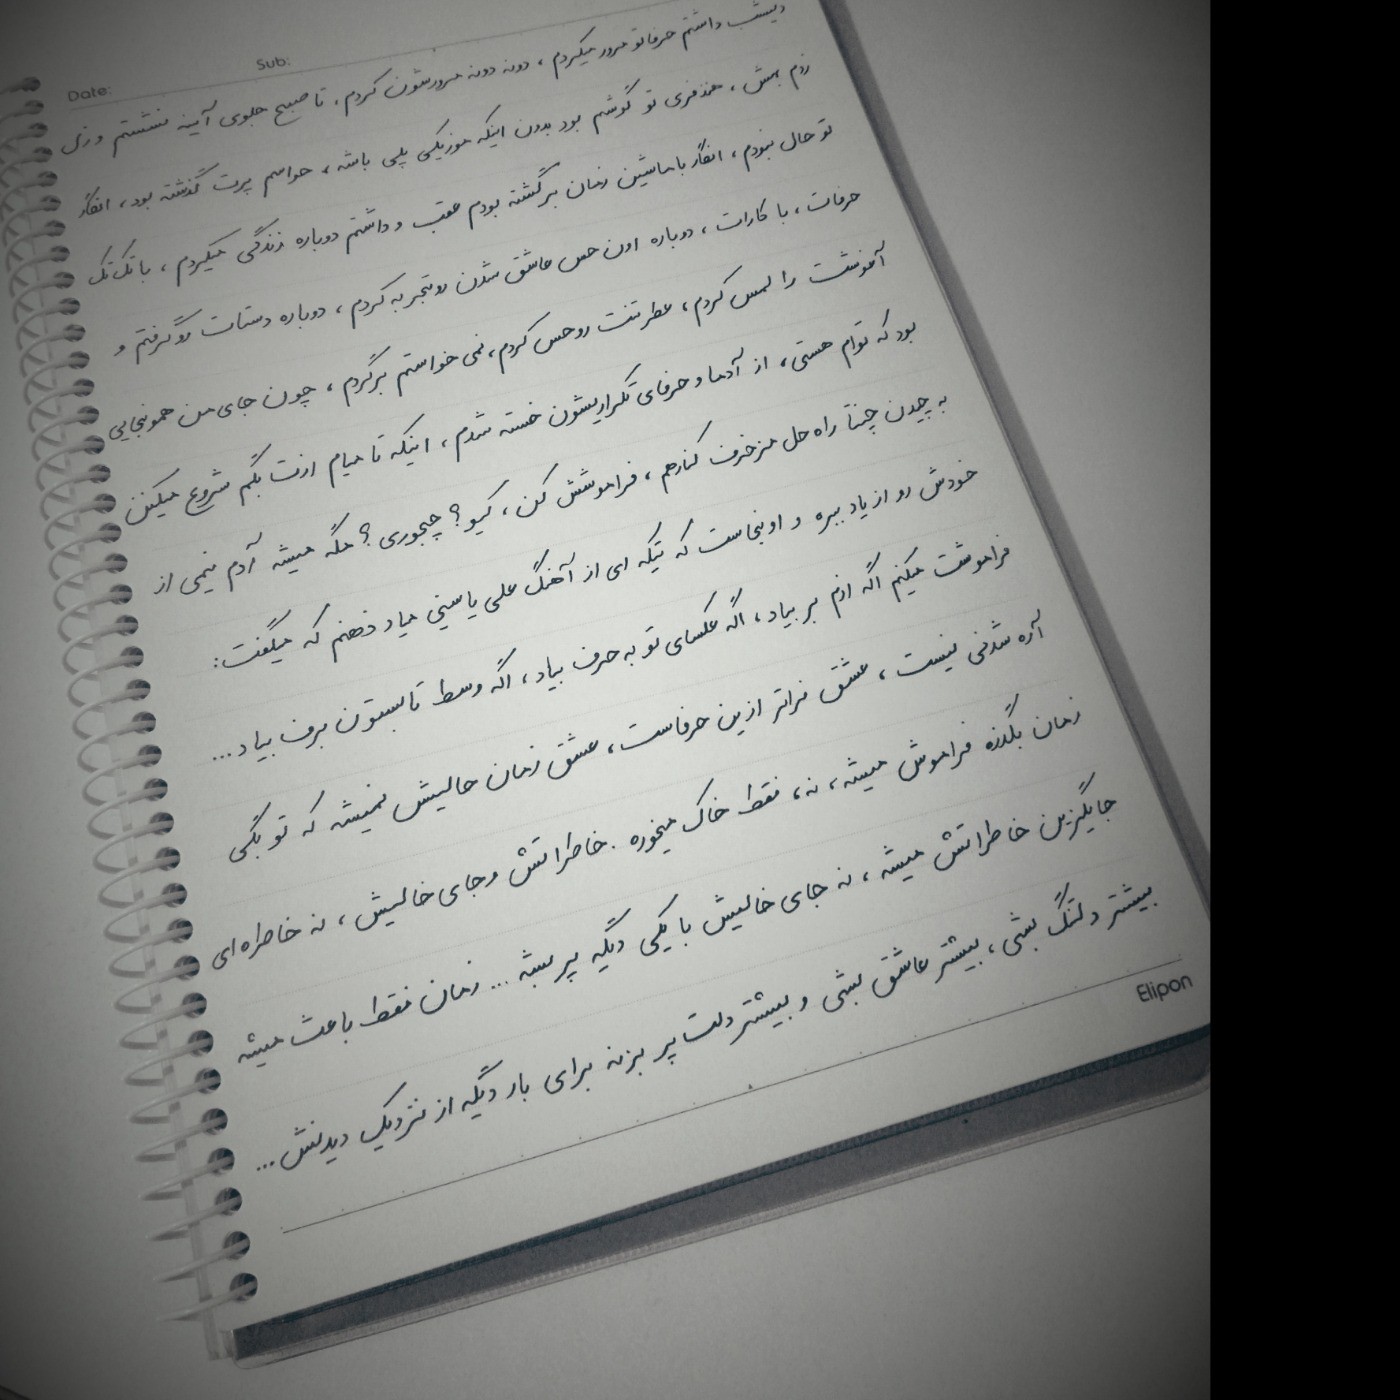 Date:
Sub:
دیشب داشتم حرفاتو مرور میکردم ، دونه دونه مرورشون کردم ، تا صبح جلوی آینه نشستم و زل
زدم بهش ، هندزفری تو گوشم بود بدون اینکه موزیکی پلی باشه ، حواسم پرت گذشته بود ، انگار
تو حال نبودم ، انگار با ماشین زمان برگشته بودم عقب و داشتم دوباره زندگی میکردم ، با تک تک
حرفات ، با کارات ، دوباره اون حس عاشق شدن رو تجربه کردم ، دوباره دستات رو گرفتم و
آغوشت را لمس کردم ، عطر تنت رو حس کردم ، نمی خواستم برگردم ، چون جای من همونجایی
بود که توام هستی ، از آدما و حرفای تکراریشون خسته شدم ، اینکه تا میام ازت بگم شروع میکنن
به چیدن چنتا راه حل مزخرف کنارهم ، فراموشش کن ، کیو ؟ چجوری ؟ مگه میشه آدم نیمی از
خودش رو از یاد ببره و اونجاست که تیکه ای از آهنگ علی یاسینی میاد ذهنم که میگفت :
فراموشت میکنم اگه ازم بر بیاد ، اگه عکسای تو به حرف بیاد ، اگه وسط تابستون برف بیاد ...
آره شدنی نیست ، عشق فراتر ازین حرفاست ، عشق زمان حالیش نمیشه که تو بگی
زمان بگذره فراموش میشه ، نه ، فقط خاک میخوره . خاطراتش و جای خالیش ، نه خاطره ای
جایگزین خاطراتش میشه ، نه جای خالیش با یکی دیگه پر بشه ... زمان فقط باعث میشه
بیشتر دلتنگ بشی ، بیشتر عاشق بشی و بیشتر دلت پر بزنه برای بار دیگه از نزدیک دیدنش ...
Elipon